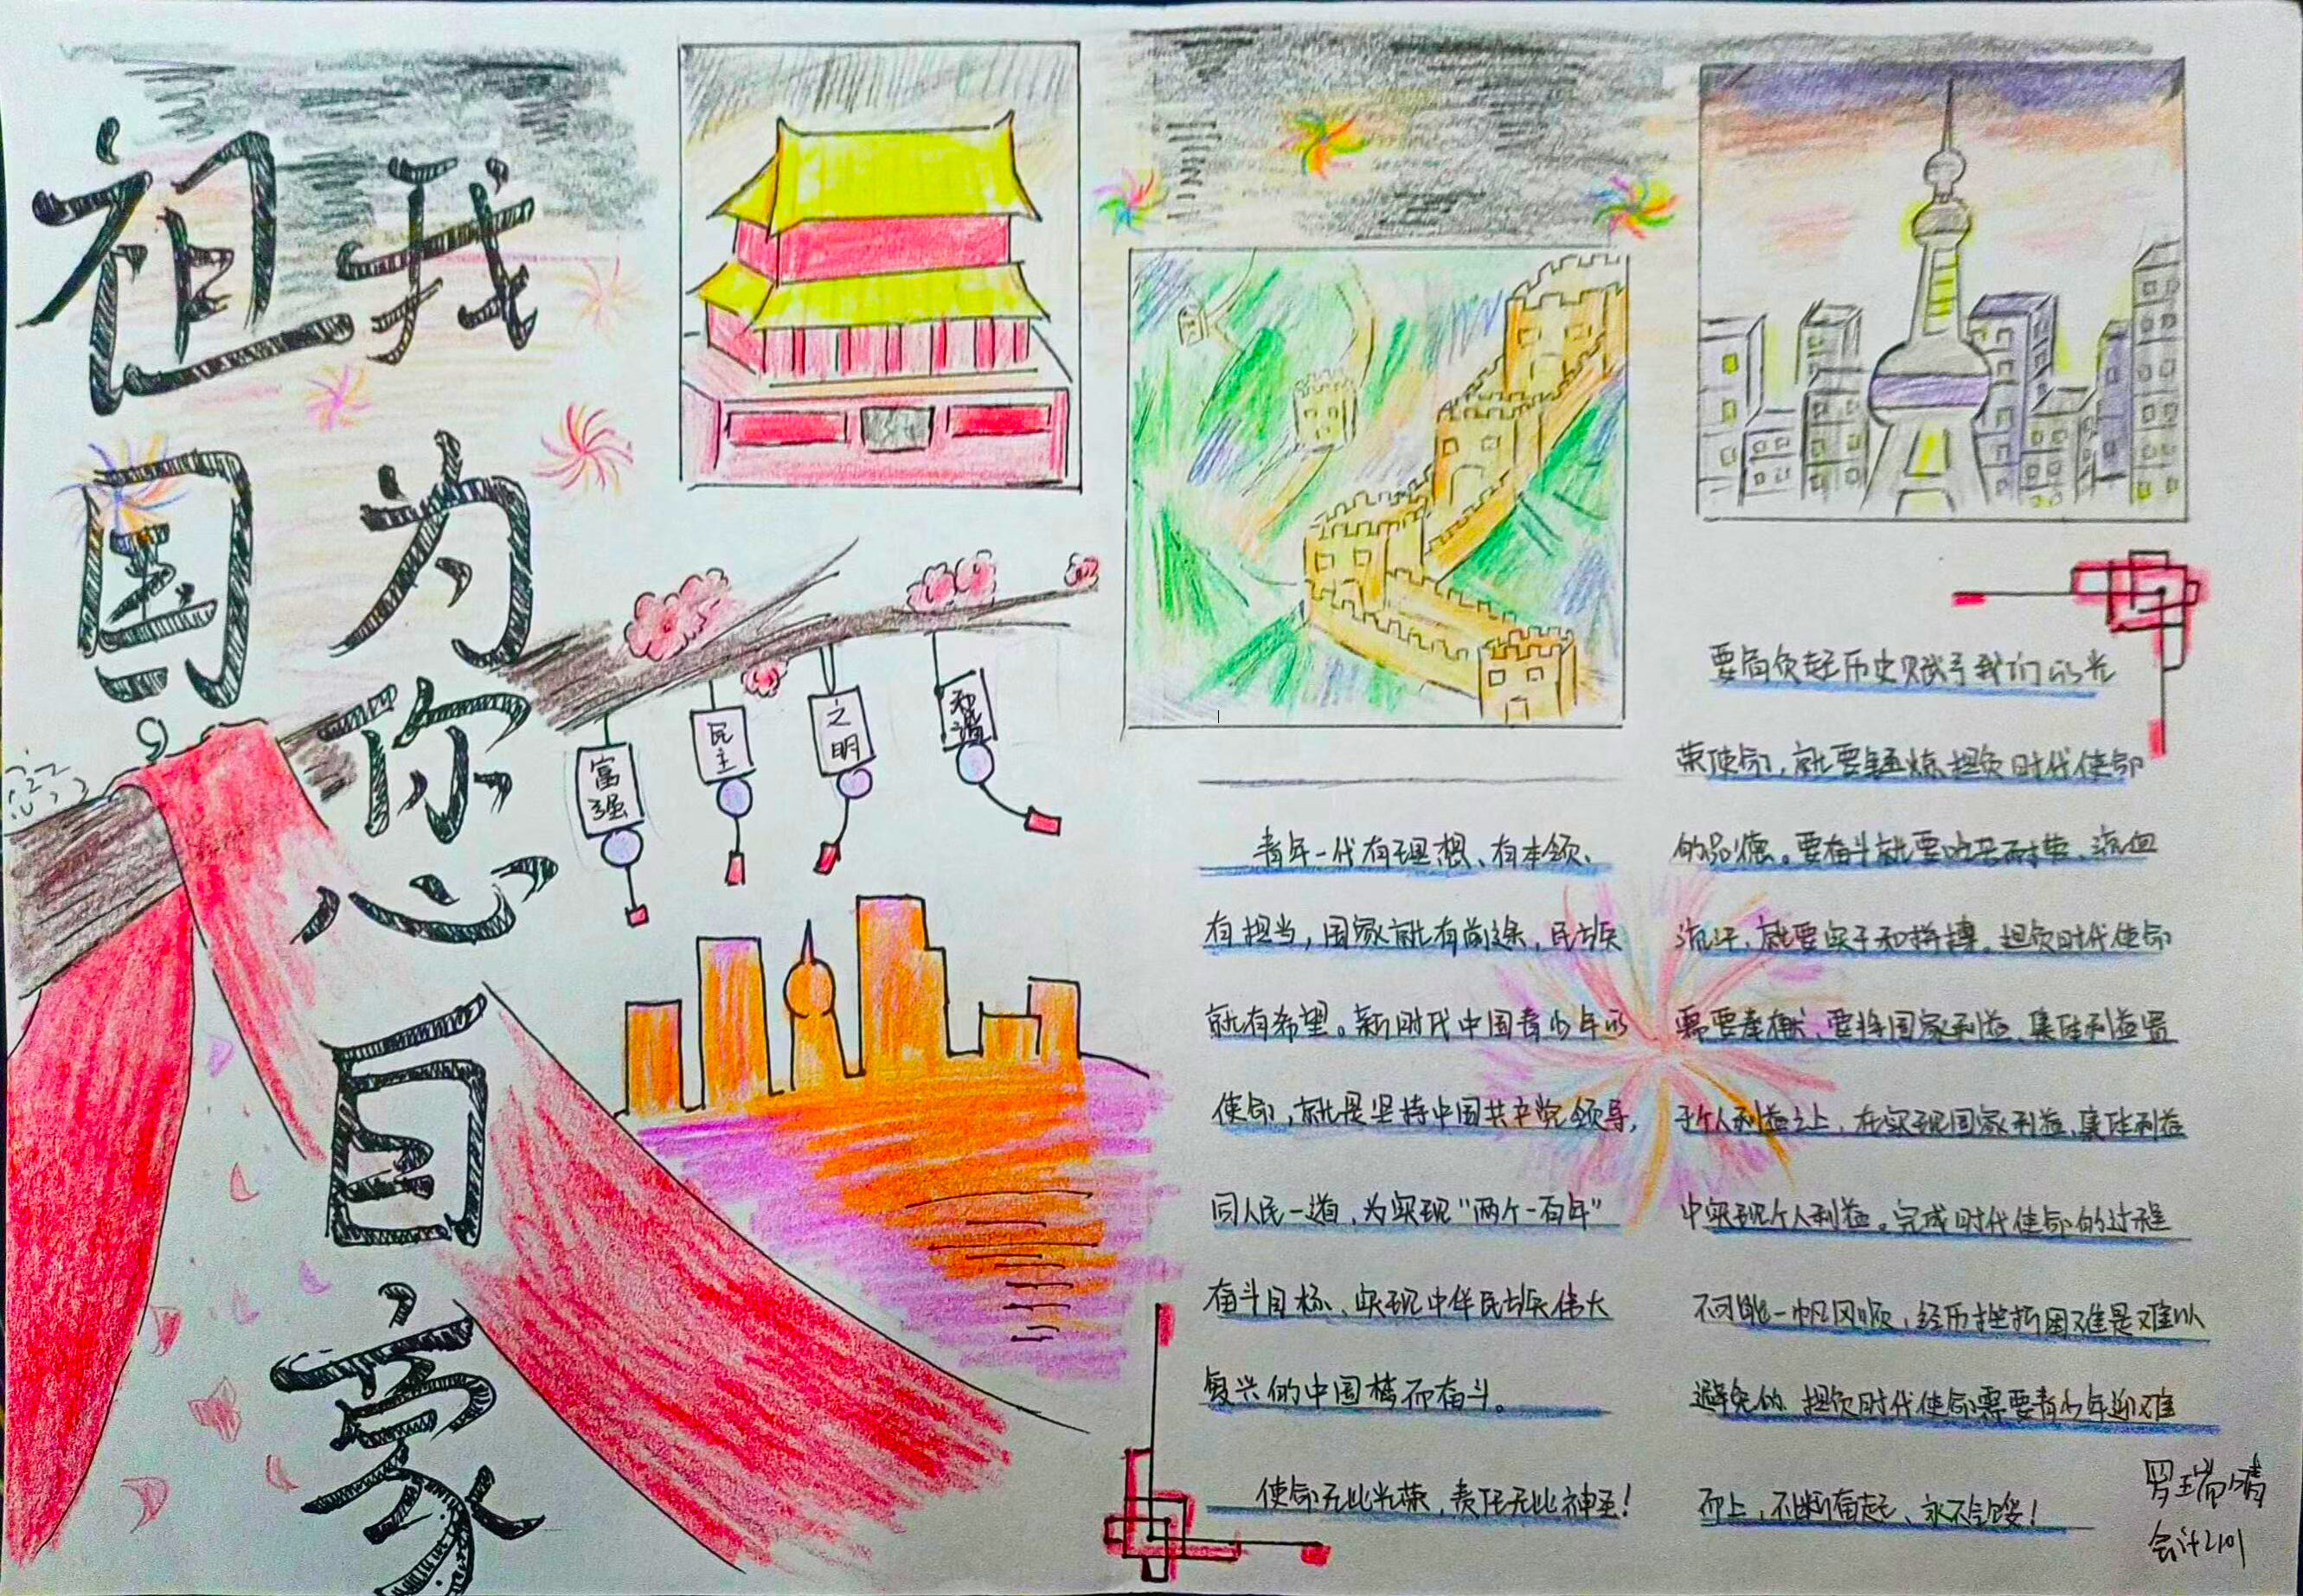 祖国，
我为您自豪
富强
民主
之明
和谐
青年一代有理想、有本领、
有担当，国家就有前途，民族
就有希望。新时代中国青少年的
使命，就是坚持中国共产党领导，
同人民一道，为实现“两个一百年”
奋斗目标、实现中华民族伟大
复兴的中国梦而奋斗。
使命无比光荣，责任无比神圣！
要肩负起历史赋予我们的光
荣使命，就要锤炼担负时代使命
的品德。要奋斗就要吃苦耐劳、流血
流汗，就要实干和拼搏。担负时代使命
需要奉献，要将国家利益、集体利益置
于个人利益之上，在实现国家利益、集体利益
中实现个人利益。完成时代使命的过程
不可能一帆风顺，经历挫折困难是难以
避免的，担负时代使命需要青少年迎难
而上，不断奋起、永不气馁！
罗瑞晴
会计2101